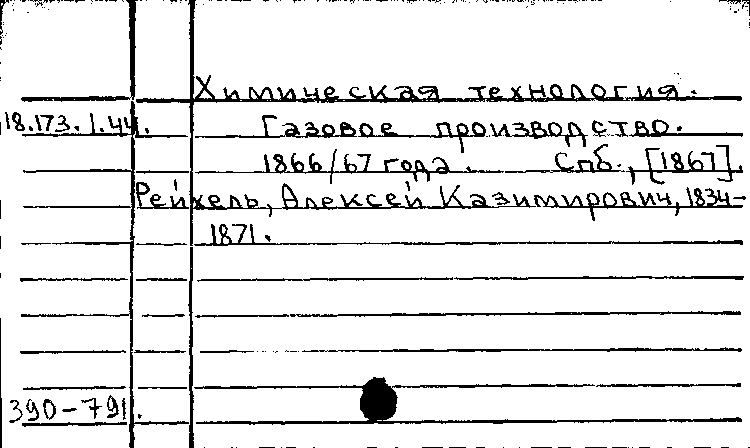 Химическая технология.
18.173.1.44. Газовое производство.
1866/67 года. Спб., [1867].
Рейхель, Алексей Казимирович, 1834-
1871.
390-791.